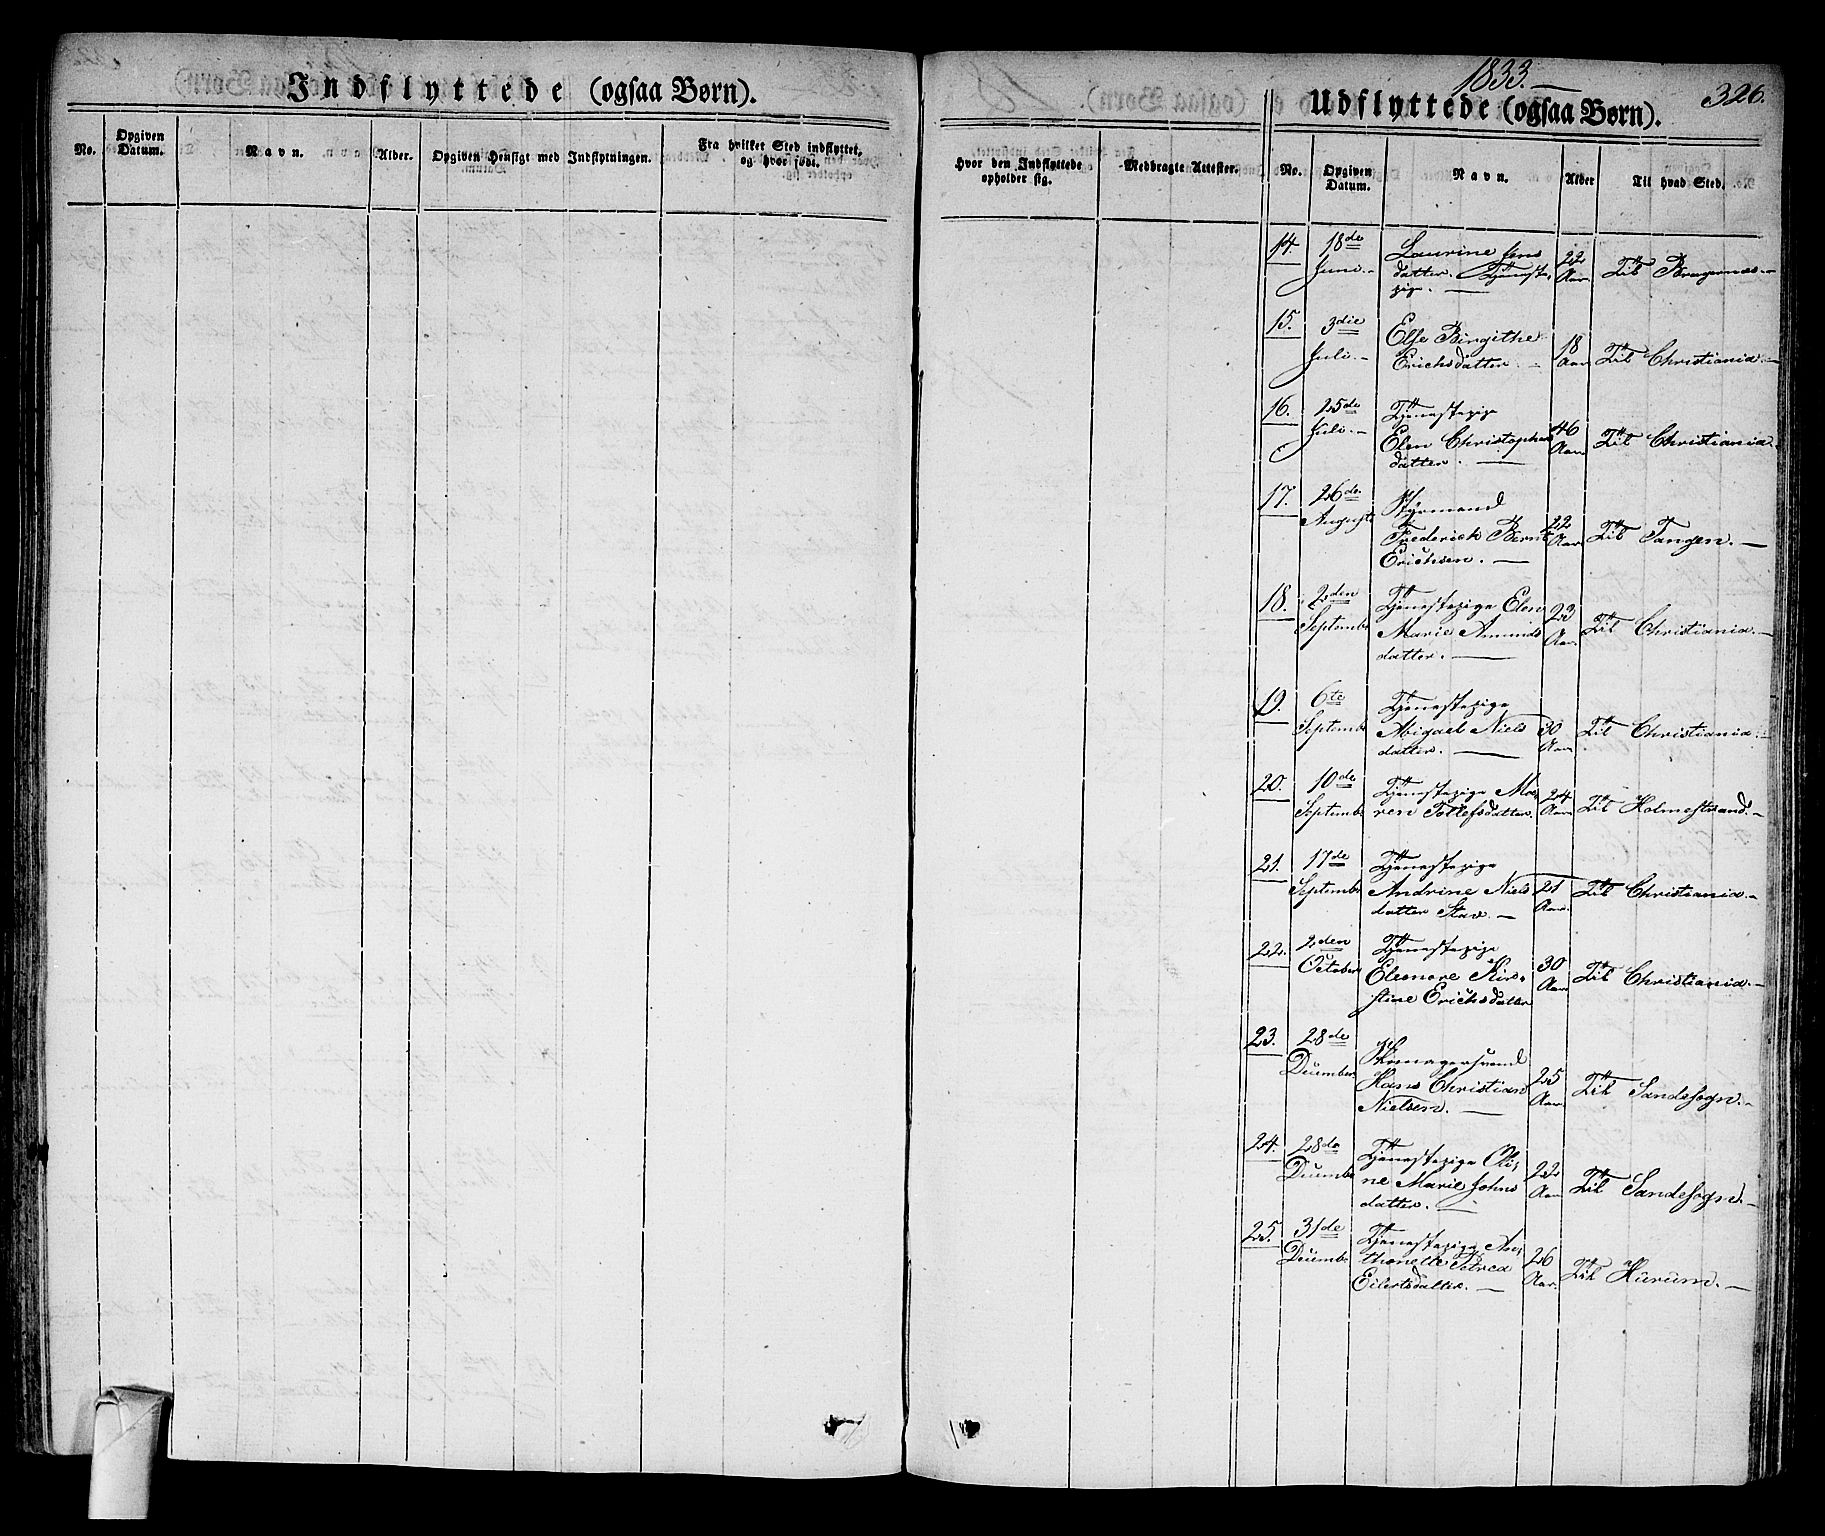 Indflyttede (ogsaa Børn).
No.
Opgiven Datum.
Navn.
Alder.
Opgiven Hensigt med Indflytningen.
Fra hvilket Sted indflyttet,
og hvor født.
Hvor den Indflyttede
opholder sig.
Medbragte Attester.
1833.—
326.
Udflyttede (ogsaa Børn).
No.
Opgiven Datum.
Navn.
Alder
Til hvad Sted.
14. 18de Juni.- Laurine Jens
datter. Tjeneste
pige. — 22 Aar. Til Bragernæs.-
15. 3die Juli.- Else Birgithe
Erichsdatter. - 18 Aar Til Christiania.-
16. 25de Juli.- Tjenestepige
Elen Christophers
datter. — 46 Aar Til Christiania.
17. 26de August Styrmand
Frederich Bernt
Erichsen. — 22 Aar Til Tangen.—
18. 2den Septembr Tjenestepige Elen
Marie Amunds
datter. — 23 Aar. Til Christiania.-
19. 6te Septembr Tjenestepige
Abigael Niels
datter. — 30 Aar Til Christiania.
20. 10de Septembr Tjenestepige Ma-
ren Tollefsdatter. 24 Aar Til Holmestrand.-
21. 17de Septembr Tjenestepige
Andrine Niels
datter Stav. — 21 Aar. Til Christiania.-
22. 2den October Tjenestepige
Eleonore Kir-
stine Erichsdatter 30 Aar Til Christiania.-
23. 28de December Skomagersvend
Hans Christian
Nielsen. — 25 Aar. Til Sandesogn.-
24. 28de Decembr Tjenestepige Oli-
ne Marie Johns
datter. — 22 Aar Til Sandesogn.-
25. 31de Decembr Tjenestepige An-
thonette Petrea
Eilertsdatter. — 26 Aar. Til Hurum.—